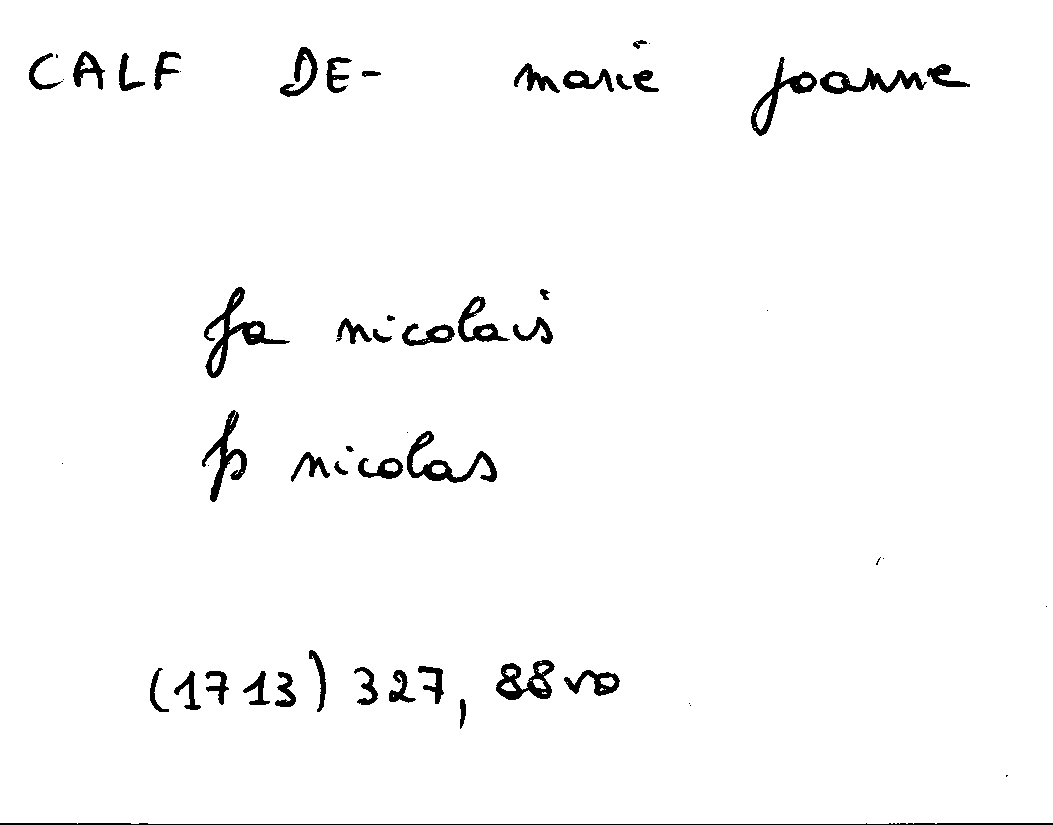 CALF DE- marie joanne
fa nicolais
p nicolas
(1713) 327, 88vo